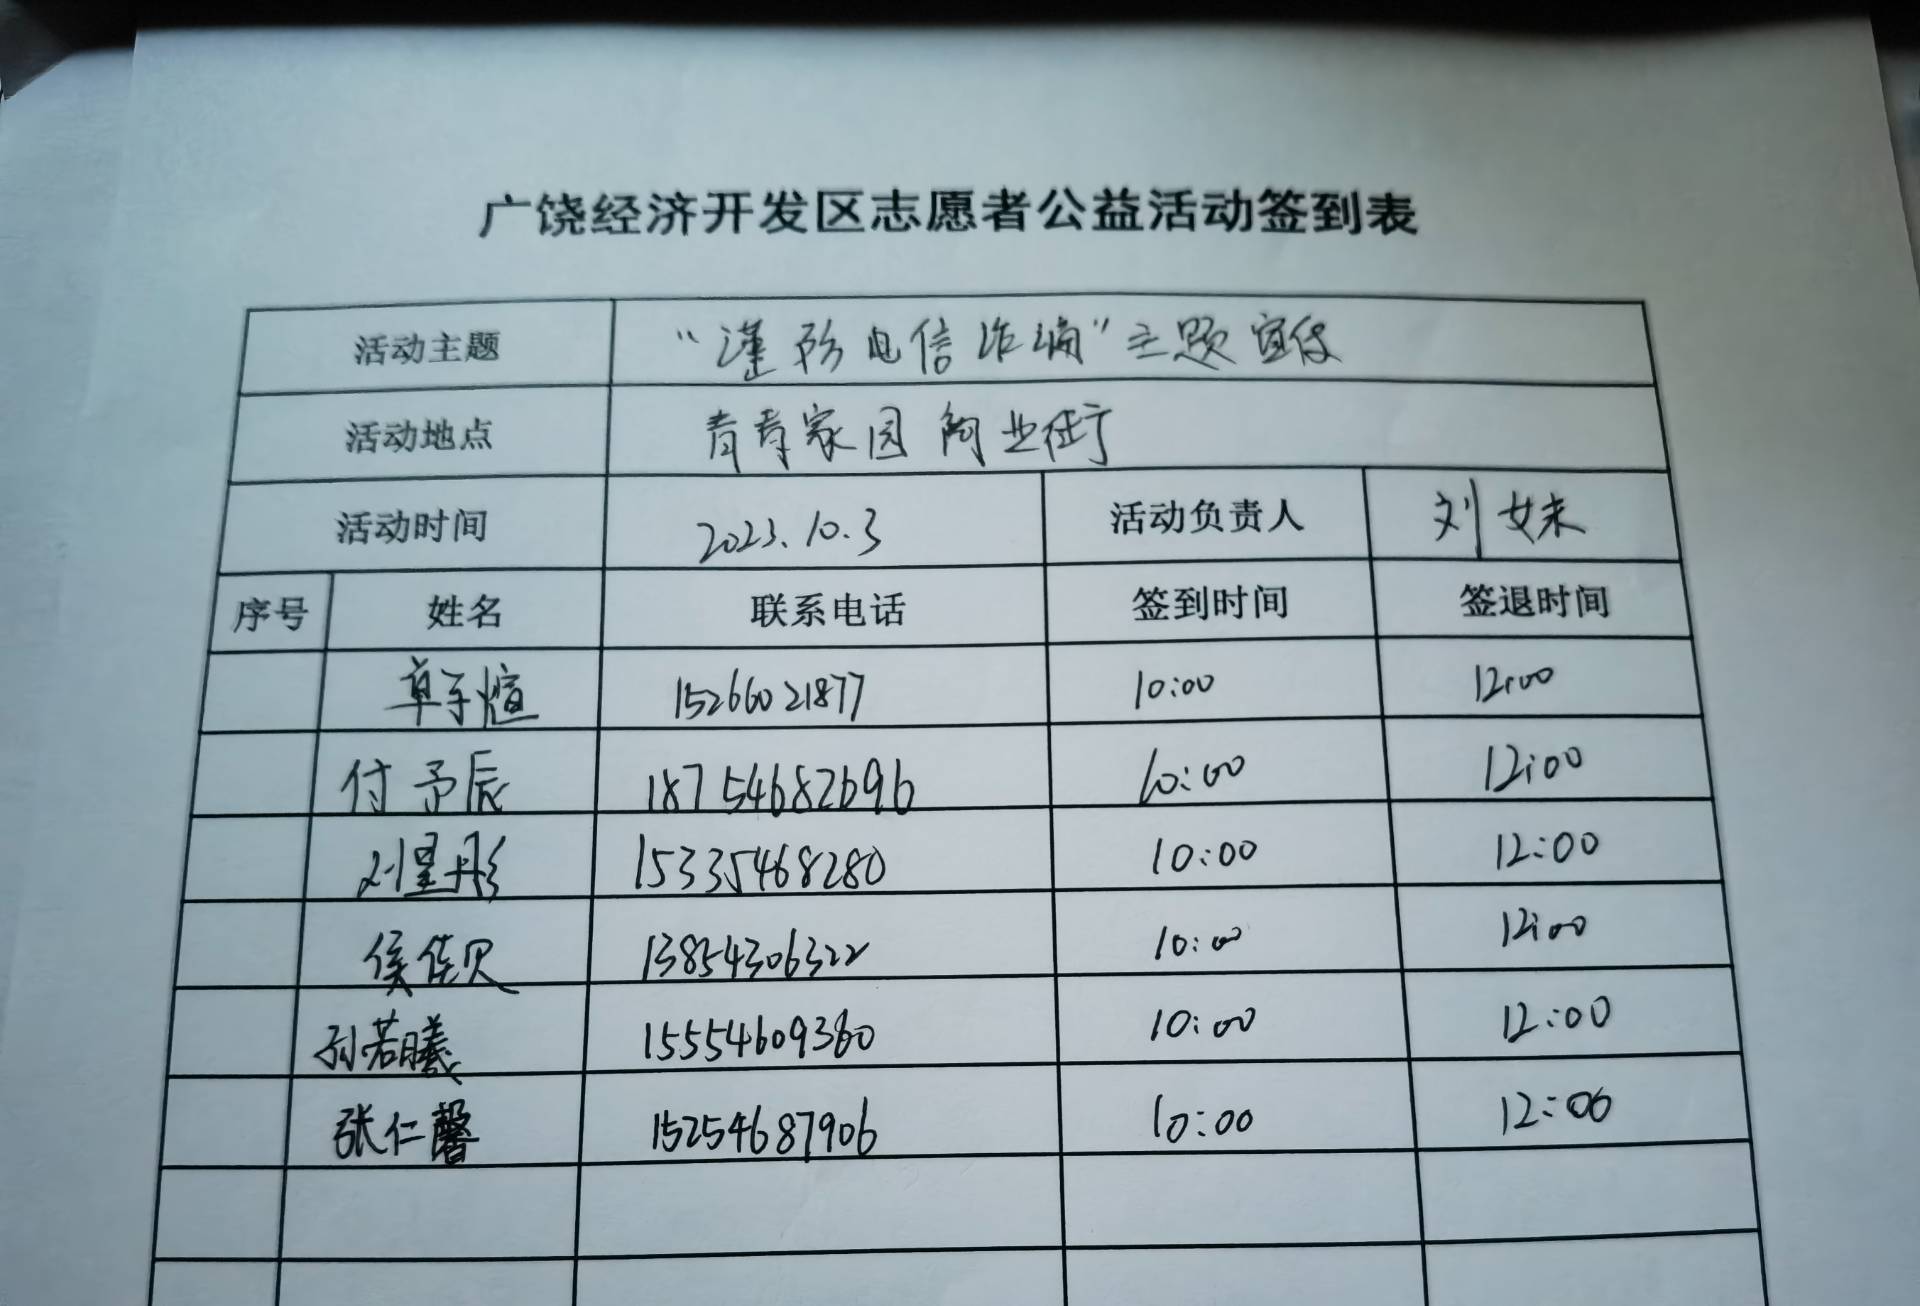 广饶经济开发区志愿者公益活动签到表
活动主题 “谨防电信诈骗”主题宣传
活动地点 青青家园商业街
活动时间 2023.10.3 活动负责人 刘妹
序号 姓名 联系电话 签到时间 签退时间
卓子煊 15266021877 10:00 12:00
付予辰 18754682696 10:00 12:00
刘星彤 15335468280 10:00 12:00
侯佳贝 13854306322 10:00 12:00
孙若曦 15554609360 10:00 12:00
张仁馨 15254687906 10:00 12:00